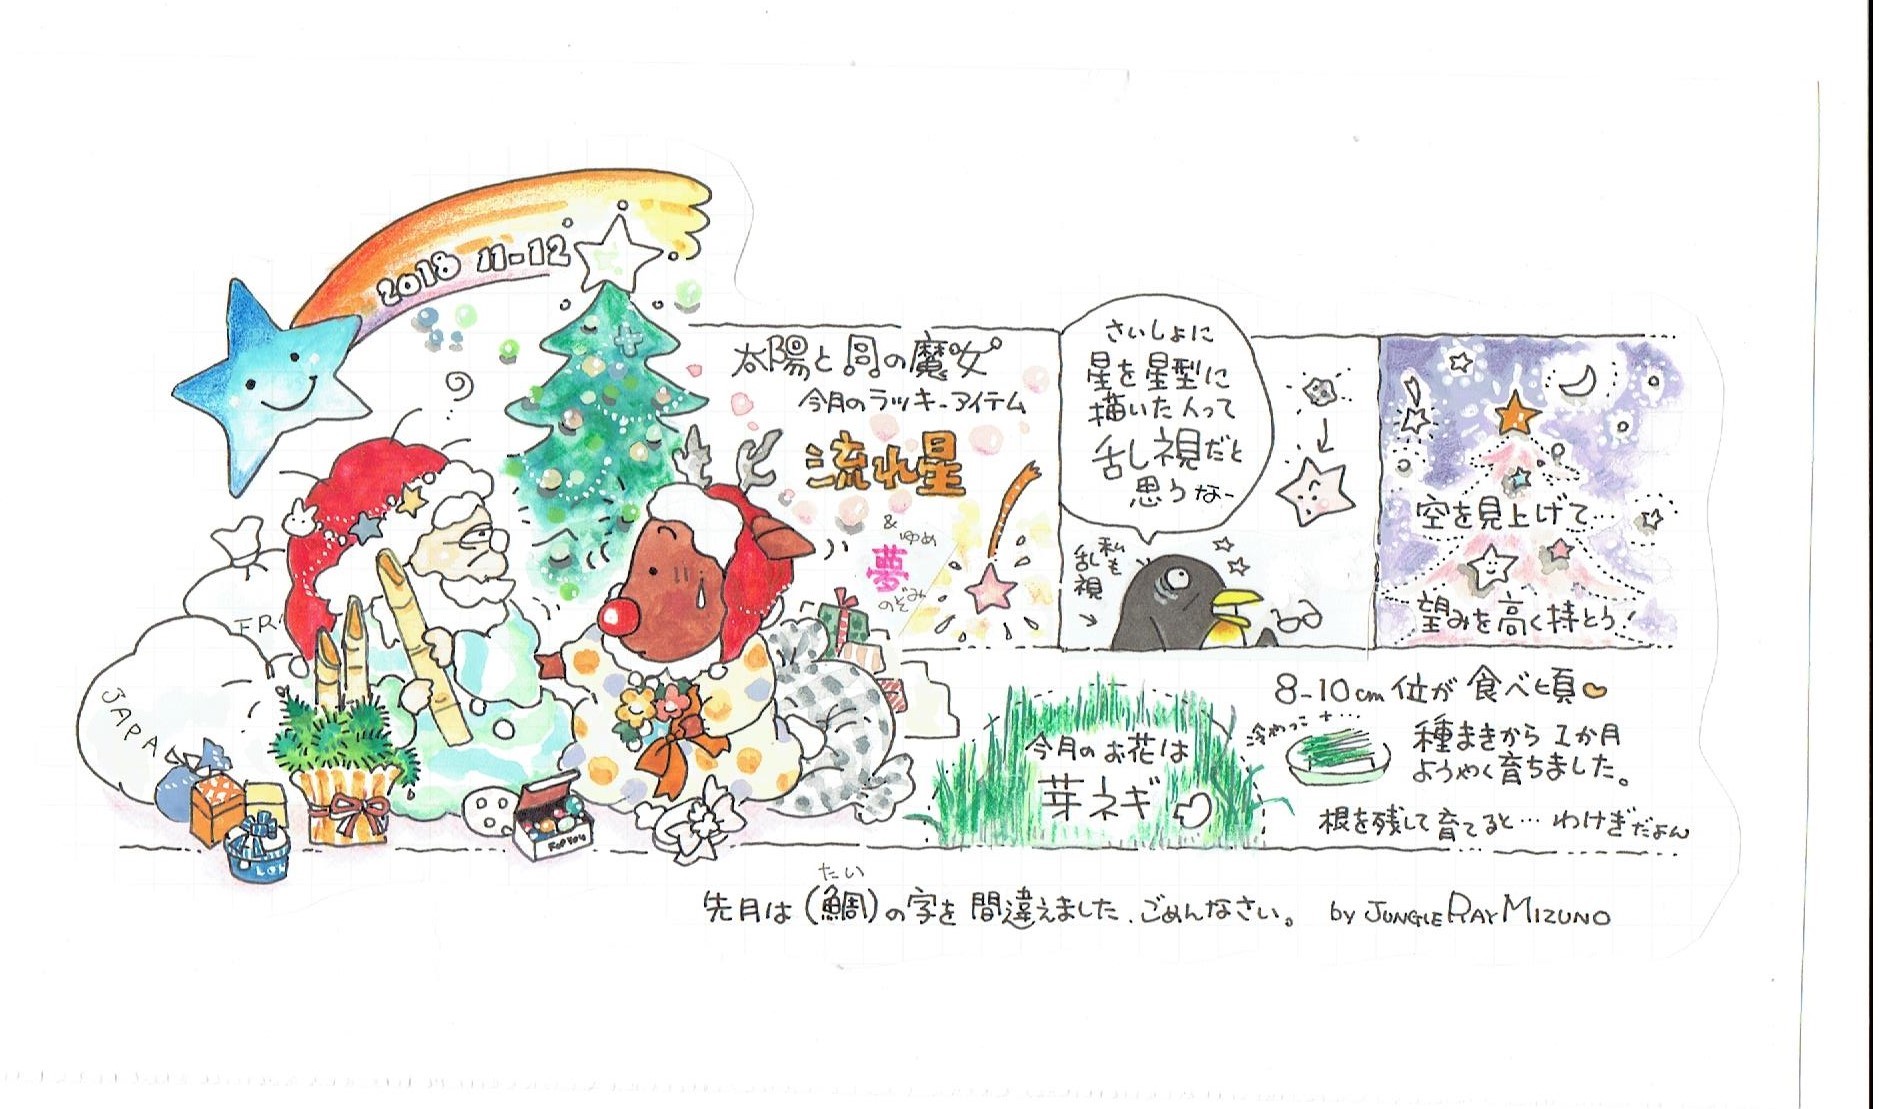 2018 11-12
太陽と月の魔女
今月のラッキーアイテム
流れ星
&
ゆめ
夢
のぞみ
さいしょに
星を星型に
描いた人って
乱視だと
思うなー
私も
乱視
空を見上げて…
望みを高く持とう!
JAPA
FR
FOR YOU
今月のお花は
芽ネギ
8-10cm位が食べ頃
種まきから1か月
ようやく育ちました。
根を残して育てると…わけぎだよん
たい
先月は(鯛)の字を間違えました、ごめんなさい。 by JUNGLE RAY MIZUNO